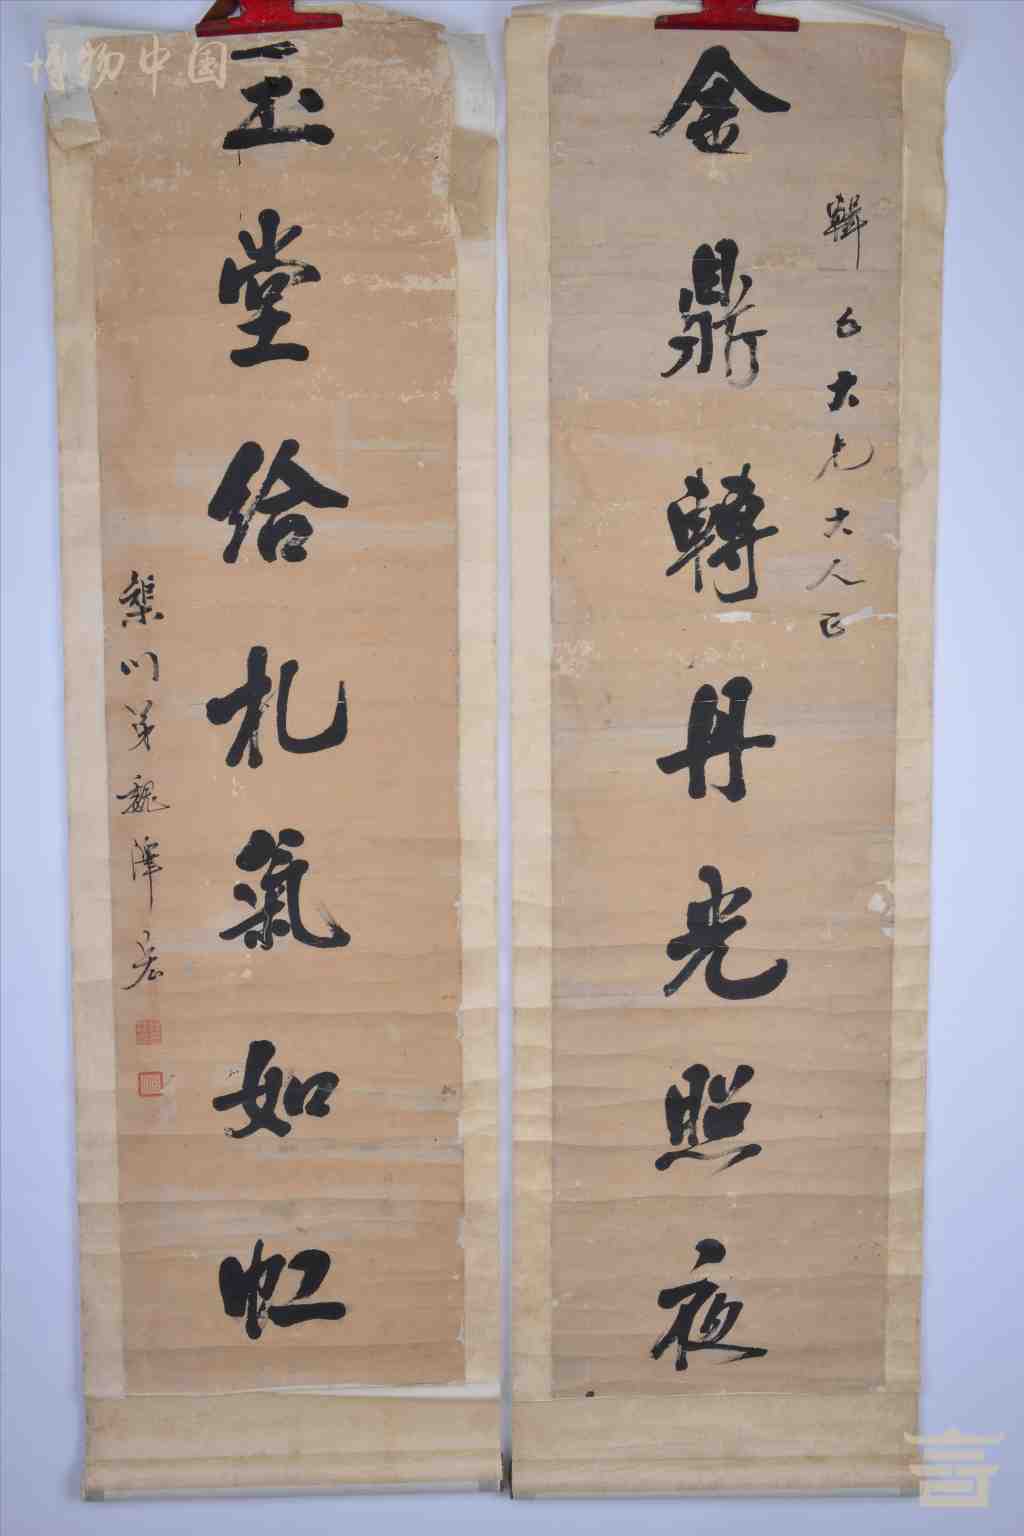 博物中国
金鼎轉丹光照夜
輯 大兄大人正
玉堂給札氣如虹
川弟魏